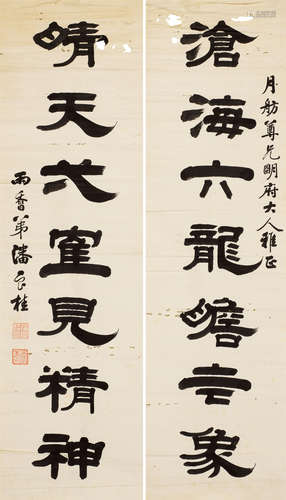 月舫尊兄明府大人雅正
滄海六龍瞻象
晴天弌寉見精神
雨香弟潘桂